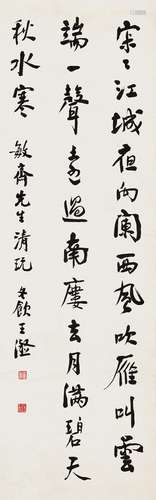 寂〻江城夜向闌西風吹雁叫雲
端一聲遠過南廔去月滿碧天
秋水寒
敏齊先生清玩
冬飲王瀣